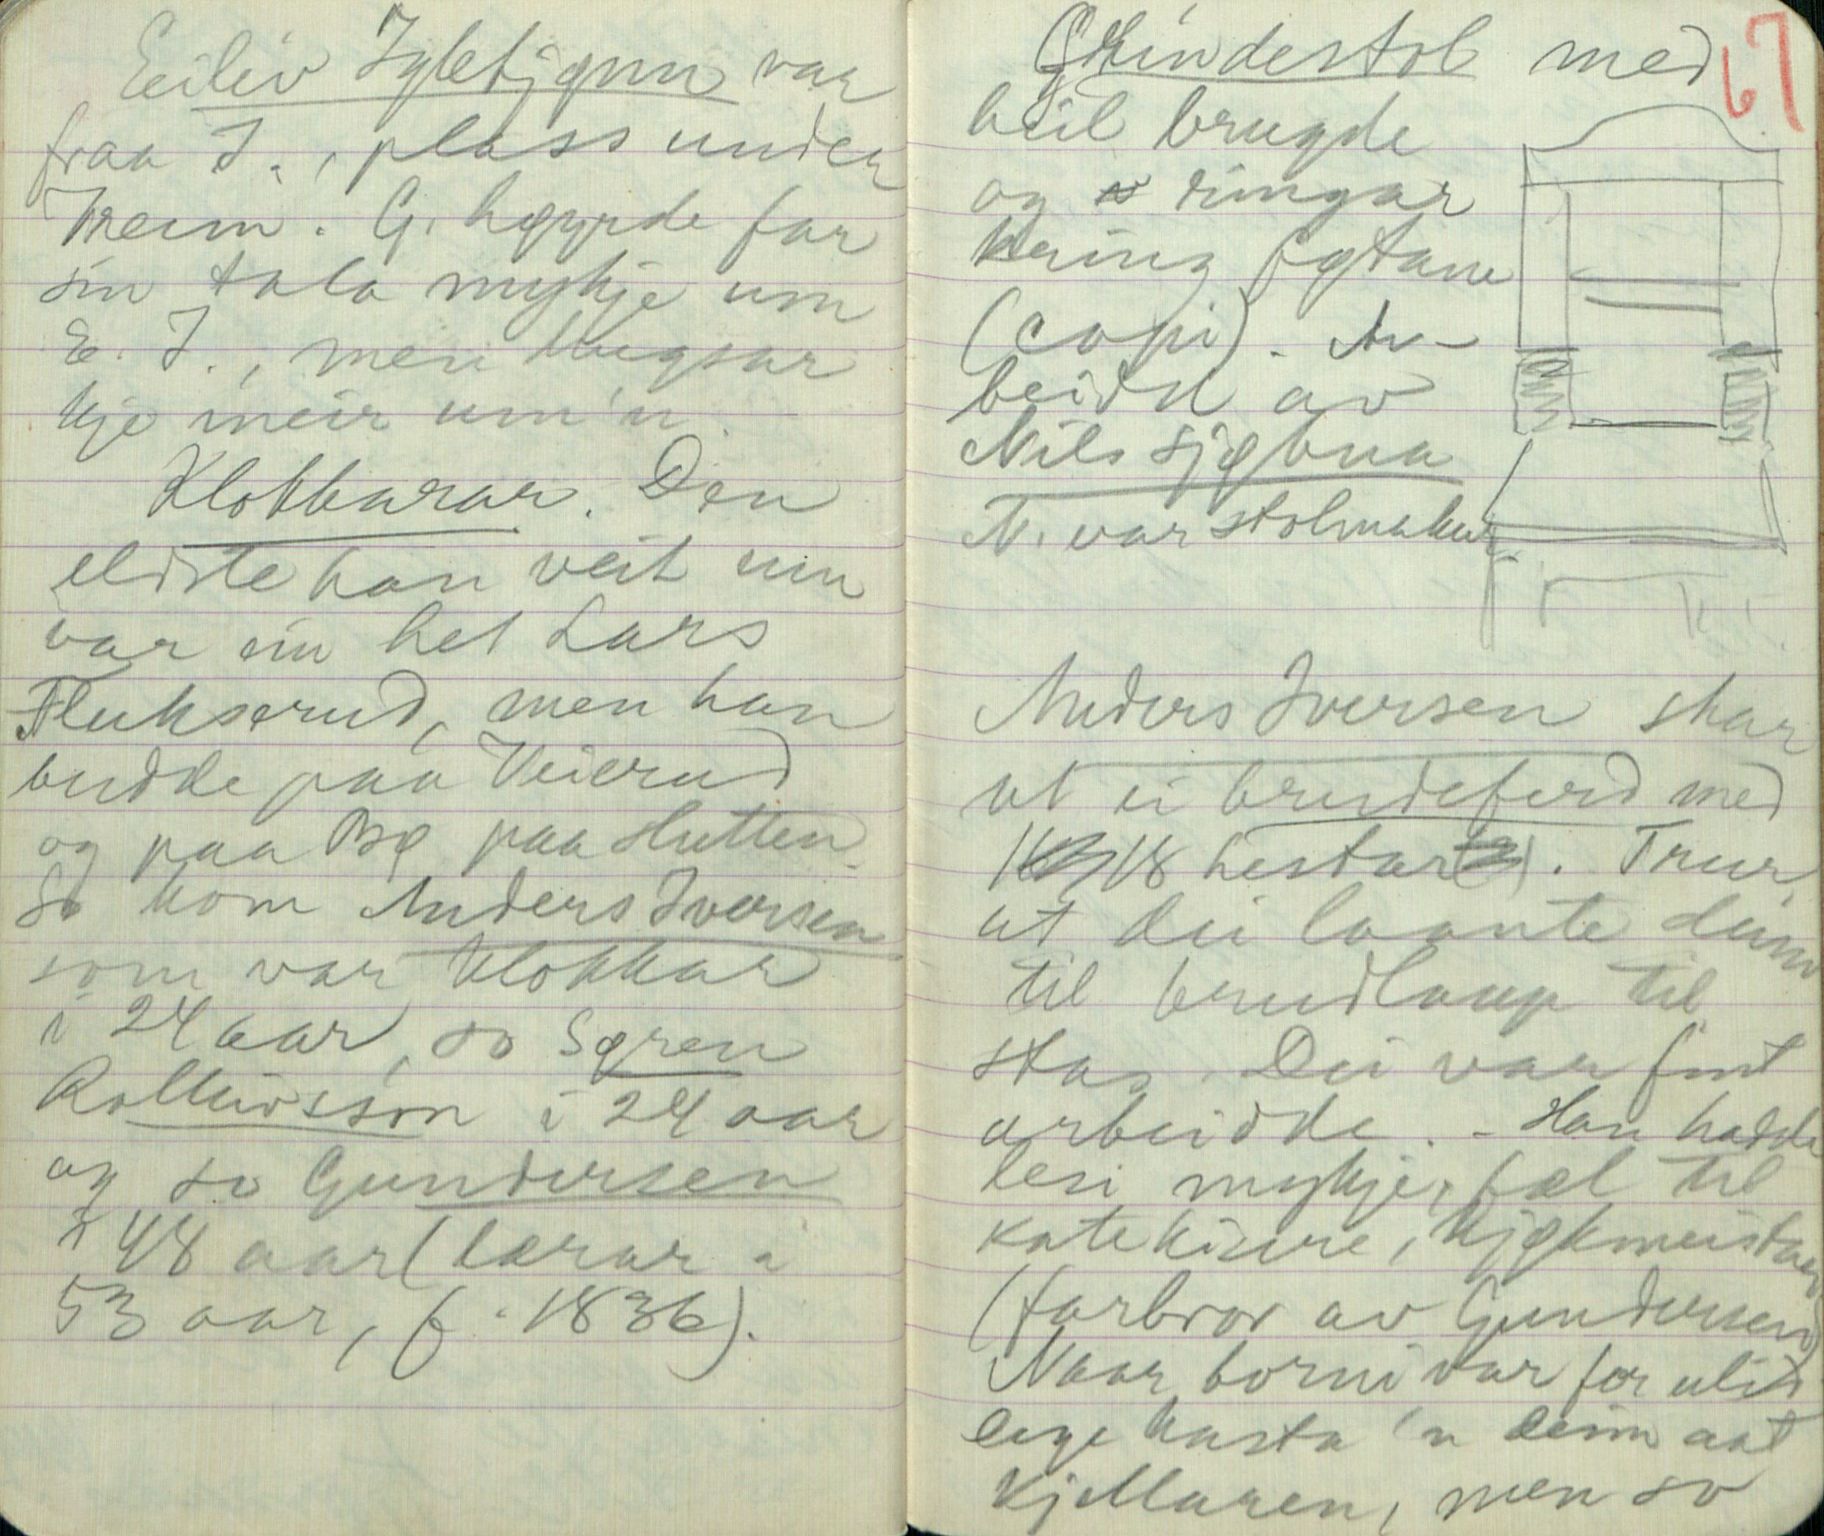 Eeiliv Igletjønn var
fraa I., plass under
Treim. G. høyrde far
sin tala mykje um
E. I., men hugsar
kje meir um'n.
Klokkarar. Den
eldste han veit um
var ein het Lars
Flukserud, men han
budde paa Veierud
og paa Bø paa Slutten.
So kom Anders Iversen
som var klokkar
i 24 aar, so Søren
Rolleivsson i 24 aar
og so Gundersen
i 48 aar (lærar i
53 aar, f. 1836).
67
Grindestol med
heil brugde
og ringar
kring føtane
(copi). Ar-
beidd av
Nils Sjøbua
N. var stolmakar
Anders Iversen skar
ut ei brudeferd med
18 hestar. Trur
at dei laante deim
til brudlaup til
stas. Dei var fint
arbeidde. - Han hadde
lesi mykje, fæl til
katekisere, kjøkmeistar
(farbror av Gundersen)
Naar borni var for ulid
lege kasta 'n deim aat
kjellaren, men so